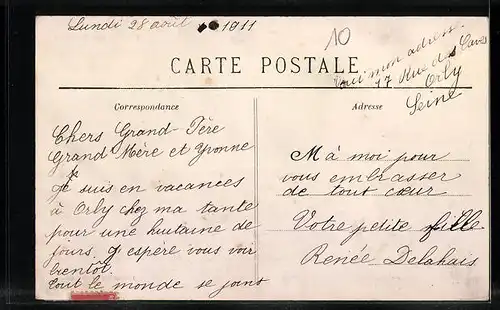 Lundi 28 août 1911
10
CARTE POSTALE
Voici mon adresse
17 Rue des Caves
Orly
Seine
Correspondance
Chers Grand-Père
Grand Mère et Yvonne
Je suis en vacances
à Orly chez ma tante
pour une huitaine de
jours. J'espère vous voir
bientôt.
Tout le monde se joint
Adresse
M à moi pour
vous embrasser
de tout cœur
Votre petite fille
Renée Delahais